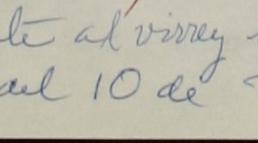 al virrey
del 10 de